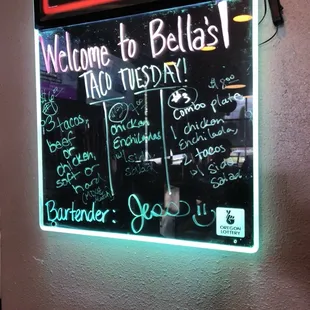 Welcome to Bella's!
TACO TUESDAY!
3 tacos
beef
or
chicken
soft
or
hard
chicken
Enchiladas
w/ side
salad
#3
combo plate
1 chicken
Enchilada,
2 tacos
w/ side
salad
Bartender: Jess
OREGON
LOTTERY